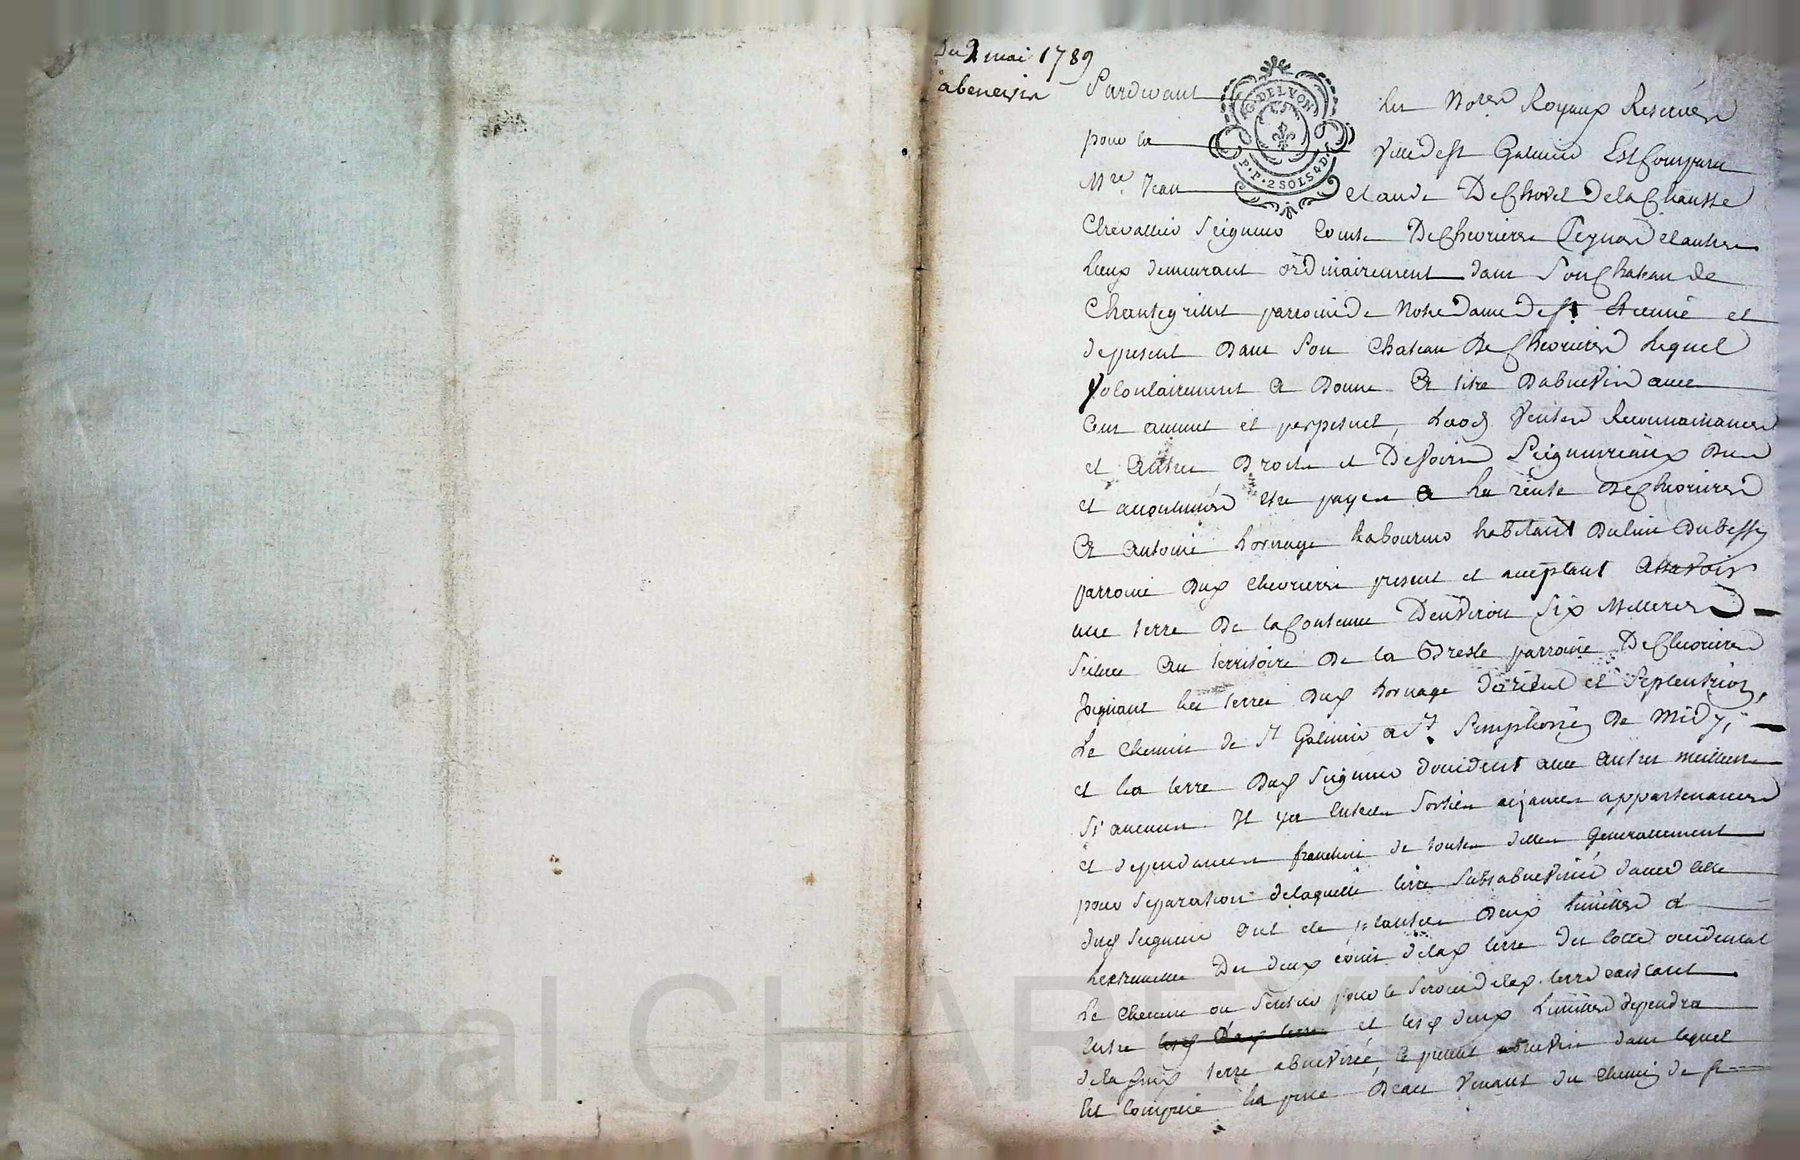 Du 2 mai 1789
abenevis
Pardevant les Nores Royaux Reservés
G. DE LYON
P. P. 2 SOLS 4 D.
pour la Ville de st Galmier Est Comparu
Mre Jean Claude De Chovet Delachausse
Chevallier Seigneur Comte De Chevrieres et autres
lieux demeurant ordinairement dans Son Chateau de
parroisse de Notre Dame de st Etienne et
depresent Dans Son Chateau De Chevrieres Lequel
Volontairement A Donné A titre Dabnevis avec
Cens annuel et perpetuel, Laods Ventes Reconnaissances
et Autres Droits et Devoirs Seigneuriaux Dus
et accoutumés Etre payes a La rente De Chevrieres
A Antoine Bornage Laboureur habitant Du lieu
parroisse Dud Chevrieres present et acceptant Assavoir
une terre De la Contenue Denviron Six Metteres
Située Au territoire De la parroisse De Chevrieres
Joignant les terres Dud Bornage Dorient et Septentrion,
Le Chemin de St Galmier a St Simphorien De Midy,
et La terre Dud Seigneur Doccident avec Autres meilleurs
Si aucuns Il y a Entrées Sorties aisances appartenances
et dependances franchises de toutes dettes Generallement
pour Separation delaquelle terre Sus abnevisée davec celle
dud Seigneur ont été plantées Deux limittes a
Des deux coins delad terre du Cotté occidental
Le Chemin ou Sentier pour le Service delad. terre existant
Entre et lesd deux Limittes dependra
dela terre abnevisée, Le present abnevis dans lequel
Est Comprise la prise Deau Venant du Chemin de St
Pascal CHAREYRON